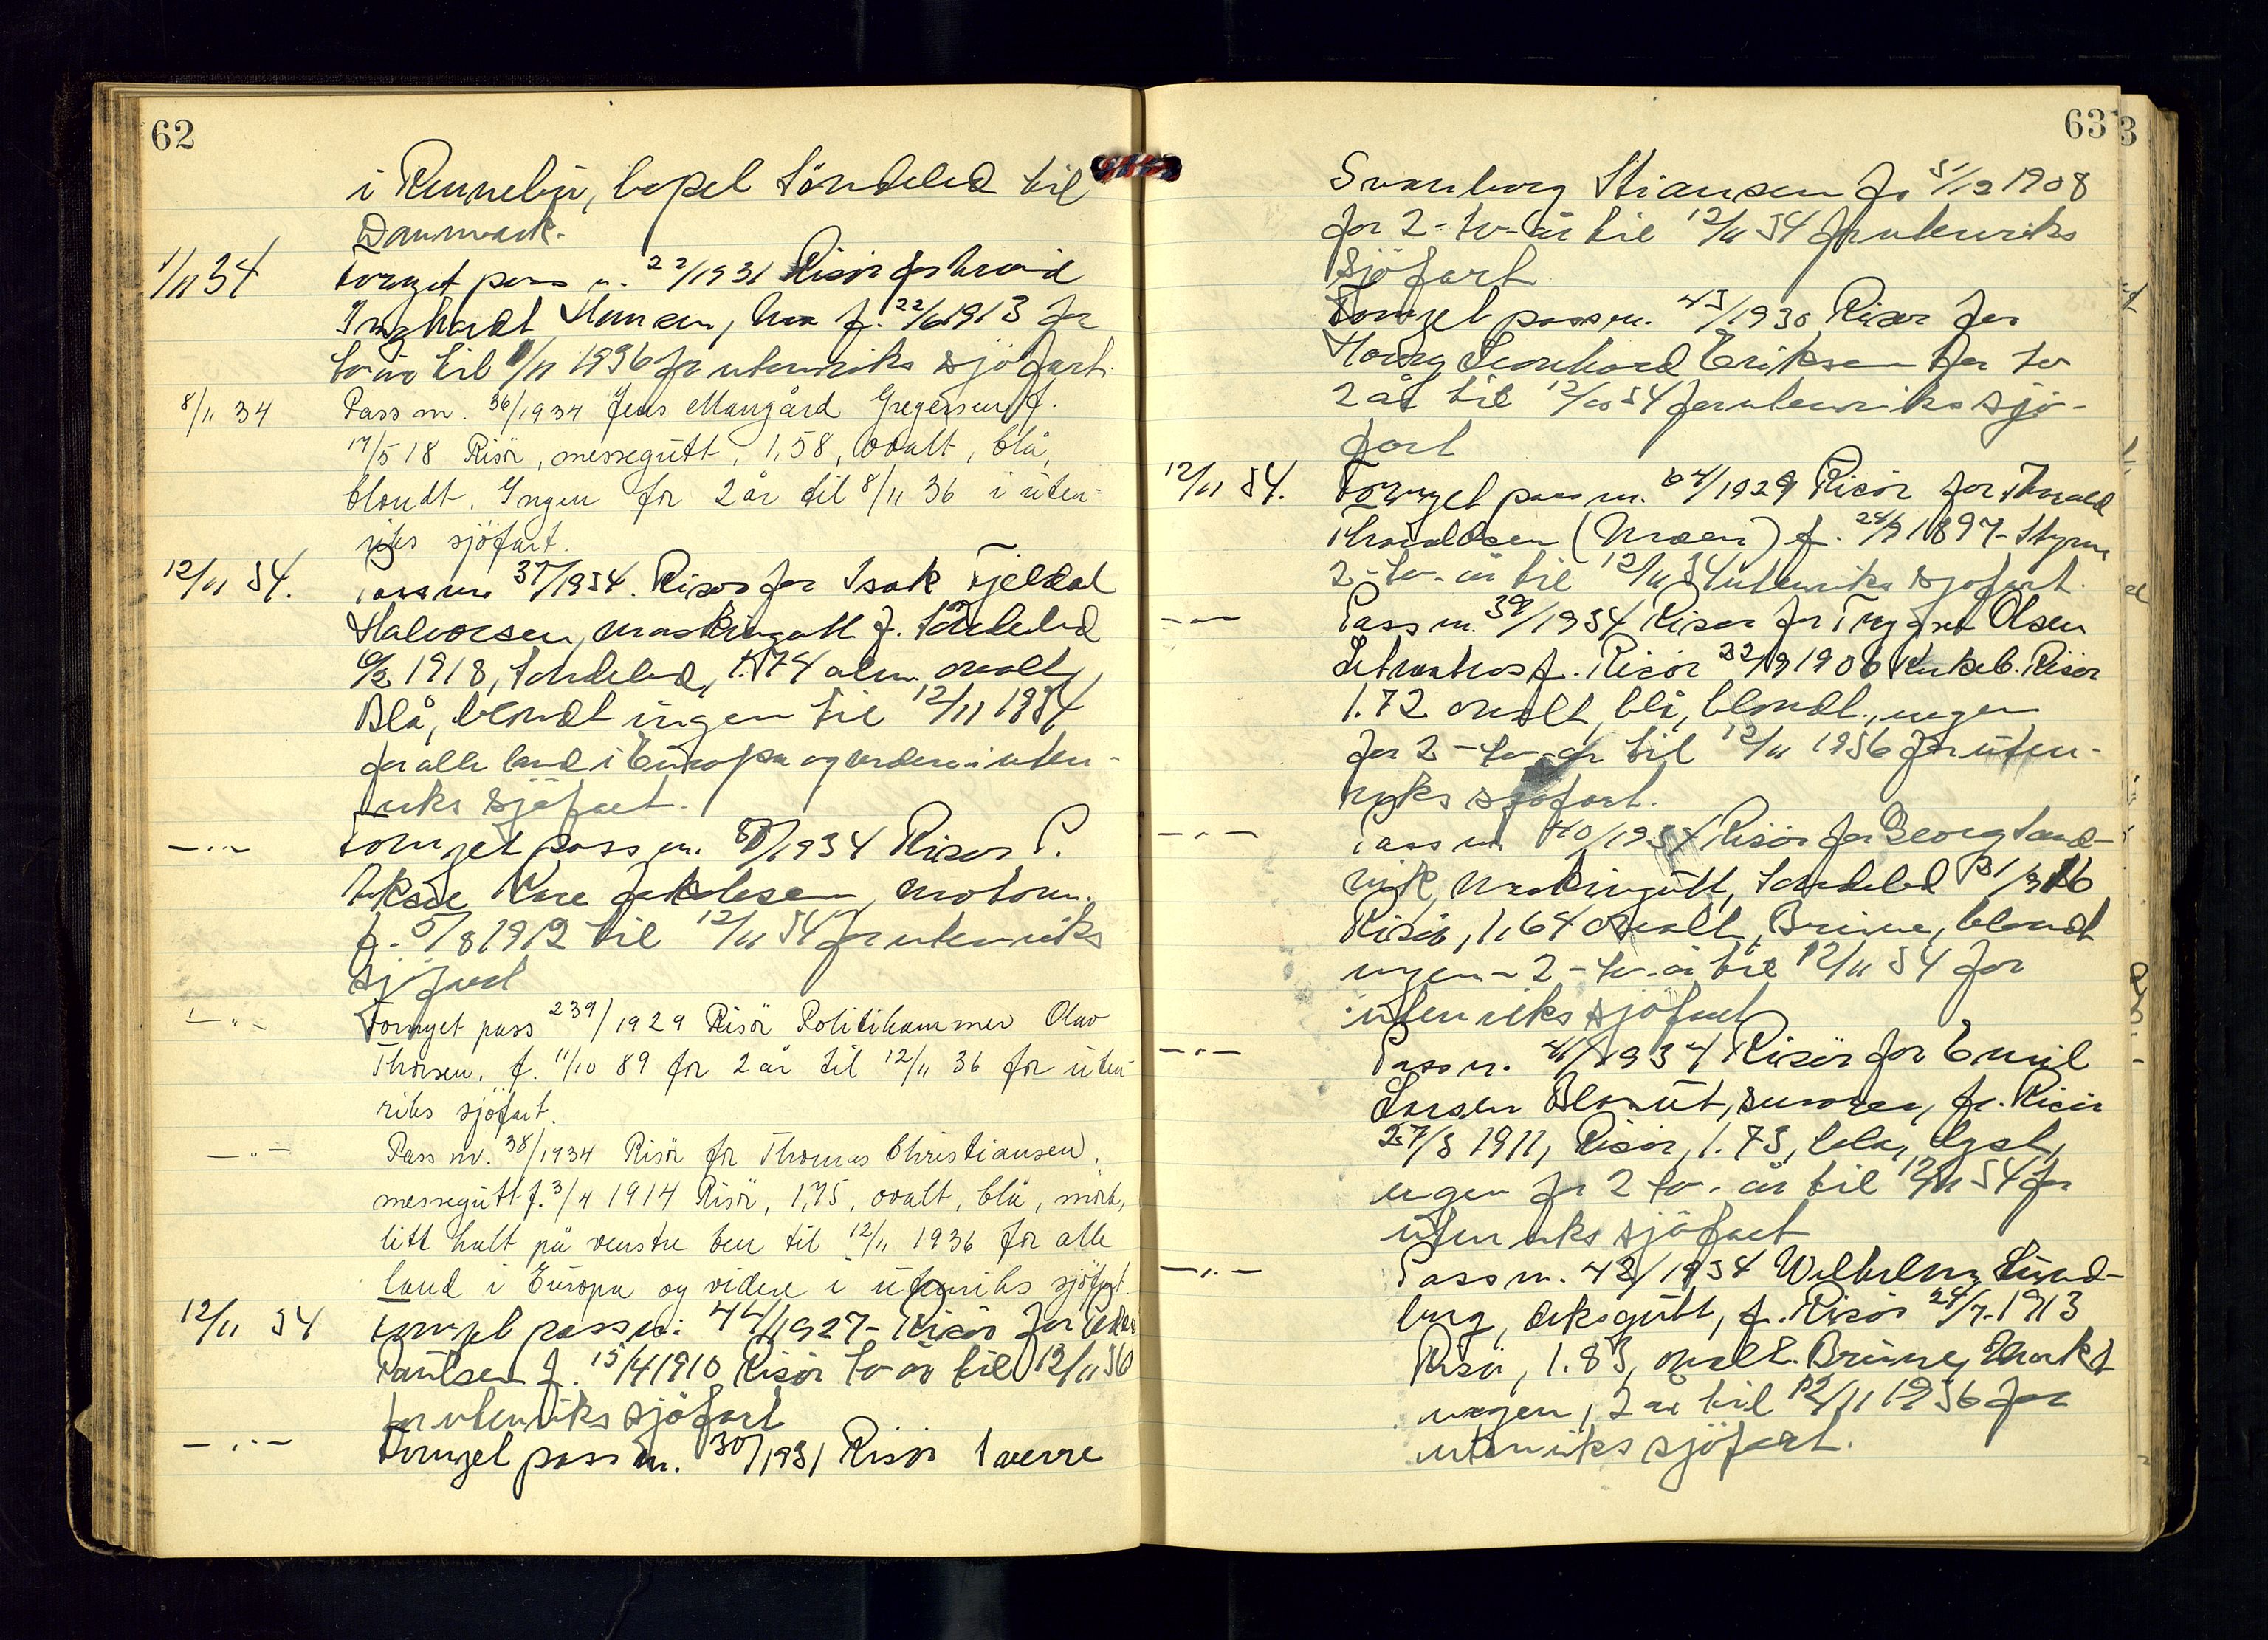 62
i Rennebu, bopel Söndeled til
Danmark.
1/11 34 Fornyet pass n. 22/1931 Risör for
Hansen, f. 22/6 1913 for
to år til 1/11 1936 for utenriks sjöfart.
8/11 34 Pass nr. 36/1934 Jens Mangård Gregersen f.
17/5 18 Risör, messegutt, 1,58, ovalt, blå,
blondt. Ingen for 2 år til 8/11 36 i uten-
riks sjöfart.
12/11 34. Pass nr. 37/1934. Risör for Isak Fjeldal
Halvorsen, maskingutt f. Söndeled
6/2 1918, Söndeled, 1.74 alm. ovalt,
Blå, blondt ingen til 12/11 1934
for alle land i Europa og videre i uten-
riks sjöfart.
-"- Fornyet pass nr. /1934 Risör P.
Aksel motorm.
f. 5/8 1912 til 12/11 34 for utenriks
sjöfart
-"- Fornyet pass 239/1929 Risör Politikammer Olav
Thorsen. f. 11/10 89 for 2 år til 12/11 36 for uten-
riks sjöfart.
-"- Pass nr. 38/1934 Risör for Thomas Christiansen,
messegutt f. 3/4 1914 Risör, 1,75, ovalt, blå, mörk,
litt halt på venstre ben til 12/11 1936 for alle
land i Europa og videre i utenriks sjöfart.
12/11 34 Fornyet pass nr. 44/1927- Risör for Peder
Paulsen f. 15/4 1910 Risör to år til 12/11 36
for utenriks sjöfart
-"- Fornyet pass nr. 30/1931 Risör Sverre
63
Svanborg Stiansen f. 5/12 1908
for 2-to-år til 12/11 34 for utenriks
sjöfart
Fornyet pass nr. 45/1930 Risör for
Leonhard Eriksen for to
2 år til 12/10 34 for utenriks sjö-
fart
12/11 34. Fornyet pass nr. 64/1929 Risör for Thorald
Thoraldsen f. 24/9 1897- Styrm
2-to-år til 12/11 34 utenriks sjöfart.
-"- Pass nr. 39/1934 Risör for Trygve Olsen
Letmatros f. Risör 22/9 1906 Risör
1.72 ovalt, blå, blondt, ingen
for 2-to-år til 12/11 1936 for uten-
riks sjöfart.
-"- Pass nr. 40/1934 Risör for Georg Sand-
vik, maskingutt, Söndeled 31/3 16
Risör, 1,64 ovalt, Brune, blondt
ingen - 2-to-år til 12/11 34 for
utenriks sjöfart
-"- Pass nr. 41/1934 Risör for Emil
Larsen f. Risör
27/3 1911, Risör, 1.73, blå, lyst,
ingen for 2 to-år til 12/11 34 for
utenriks sjöfart
-"- Pass nr. 42/1934 Wilhelm Lund-
berg, dæksgutt, f. Risör 24/7-1913
Risör, 1.83, ovalt. Brune, Mörkt
ingen, 2 år til 12/11 1936 for
utenriks sjöfart.